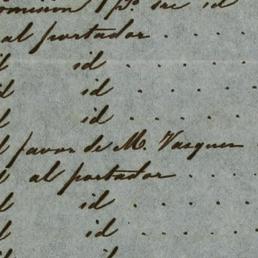 al portador . . . .
id . . . .
id . . . .
id . . . .
favor de M. Vasquez
al portador . . . .
id . . . .
id . . . .
id